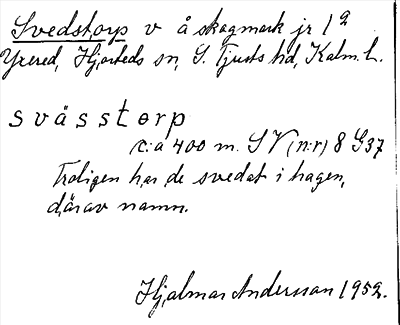 Svedstorp v å skogmark jr 1ª
Yxered, Hjorteds sn, S. Tjusts hd, Kalm. l.
svässtorp
c:a 400 m. SV (n:r) 8 G37
Troligen har de svedat i hagen,
därav namn.
Hjalmar Andersson 1952.